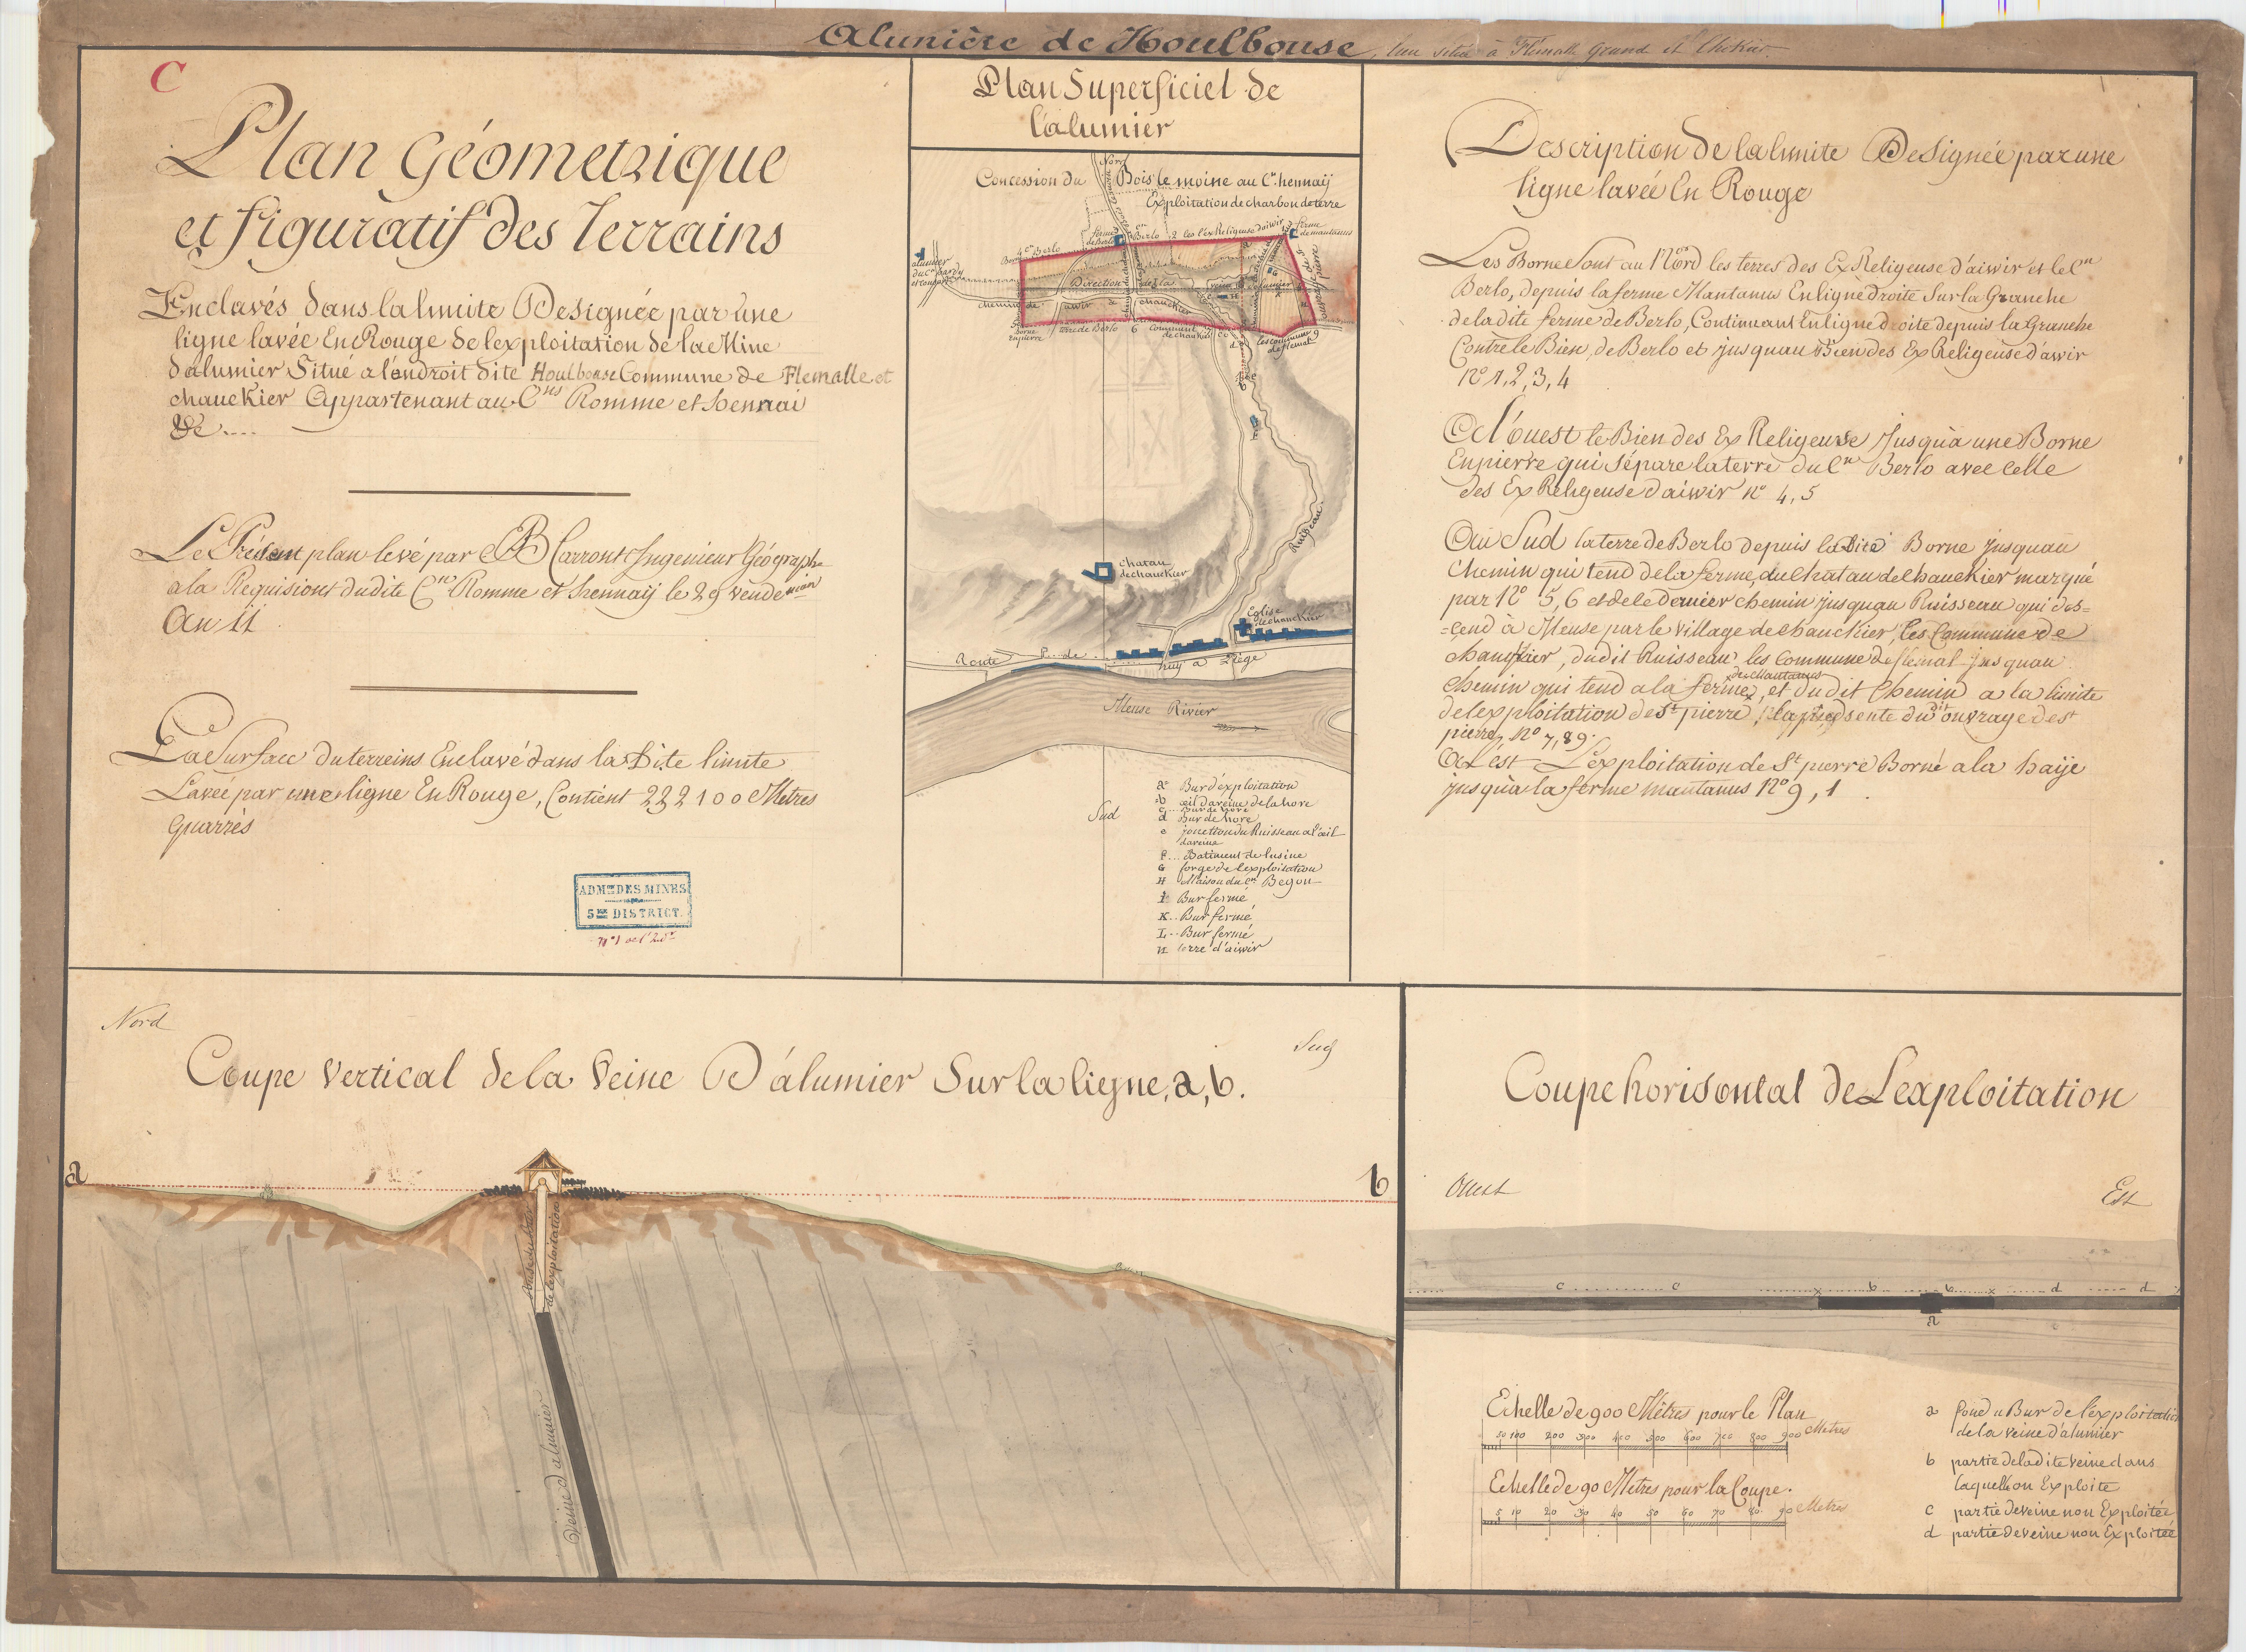 Alunière de Houlbouse, lieu situé à Flémalle Grand et Chokier
C
Plan Géometrique
et figuratif des Terrains
Enclavés dans la limite Designée par une
ligne lavée En Rouge de lexploitation de la Mine
d'alumier Situé a lendroit dite Houlbouse Commune de Flemalle et
chauckier Appartenant au Cns Romme et hennai
&c....
Le Présent plan levé par B Carront Ingenieur Géographe
a la Requisiont dudite Cne Romme et hennaij le 29 vendemiair
An 11
La Surface du terreins Enclavé dans la Dite limite
Lavée par une ligne En Rouge, Contient 232100 Metres
quarrés
ADMon DES MINES
5me DISTRICT.
Plan Superficiel de
l'alumier
Nord
Concession du Bois le moine au Cn. hennaij
Exploitation de charbon de terre
ferme de Berlo
Cn Berlo
2 les Ex Religeuse daiwir
ferme de mantanus
4 Cn Berlo
Borne
alumier
Direction de la veine alumier
chemin de awir a chauckier
5 Borne
en pierre
terre de Berlo 6 Commune
de chaukier
les commune 9
de flemal
Ruigeau
chatau
de chauckier
Eglise
de chauckier
Route P. de huy a Liége
Meuse Rivier
Sud
a Bur d'exploitation
b œil daréine de la hore
c... Bur de hore
d Bur de hore
e jonction du Ruisseau a l'œil
daréine
f... Batiment de lusine
G forge de l'exploitation
H Maison du Cn Begon
I Bur fermé
K.. Bur fermé
L.. Bur fermé
n terre d'aiwir
Description de la limite Designée par une
ligne lavée En Rouge
Les Borne Sont au Nord les terres des Ex Religeuse d'aiwir et le Cn
Berlo, depuis la ferme Mantanus En ligne droite Sur la Granche
de la dite ferme de Berlo, Continuant En ligne droite depuis la Granche
Contre le Bien, de Berlo et jusquau Bien des Ex Religeuse d'awir
No 1, 2, 3, 4
A l'ouest le Bien des Ex Religeuse Jusqu'a une Borne
En pierre qui Sépare la terre du Cn Berlo avec celle
des Ex Religeuse daiwir no 4, 5
Au Sud la terre de Berlo depuis la Dite Borne jusquau
Chemin qui tend de la ferme, au Chatau de chauckier marqué
par No 5, 6 et de le dernier chemin jusquau Ruisseau qui des=
=cend à Meuse par le village de chauckier, les Commune de
chauckier, dudit Ruisseau les Commune de flemal jusquau
de Mantanus
chemin qui tend a la ferme, et dudit Chemin a la limite
de lexploitation de St pierre, dudit ouvrage de st
pierre, No 7, 89.
A L'ést L'exploitation de St pierre Borné a la haije
jusqu'a la ferme mantanus No 9, 1
Nord
Sud
Coupe Vertical de la Veine D'alumier Sur la liegne, a, b.
a
b
fonse du bur
de lexploitation
Veine d'alumier
Coupe horisontal de Lexploitation
Ouest
Est
c c x b b x d d
a
Echelle de 900 Métres pour le Plan
50 100 200 300 400 500 600 700 800 900 Metres
Echelle de 90 Metres pour la Coupe.
5 10 20 30 40 50 60 70 80 90 Metres
a fond u Bur de l'exploitation
de la veine d'alumier
b partie de la dite veine dans
laquelle on Exploite
c partie de veine non Exploitée
d partie de veine non Exploitée